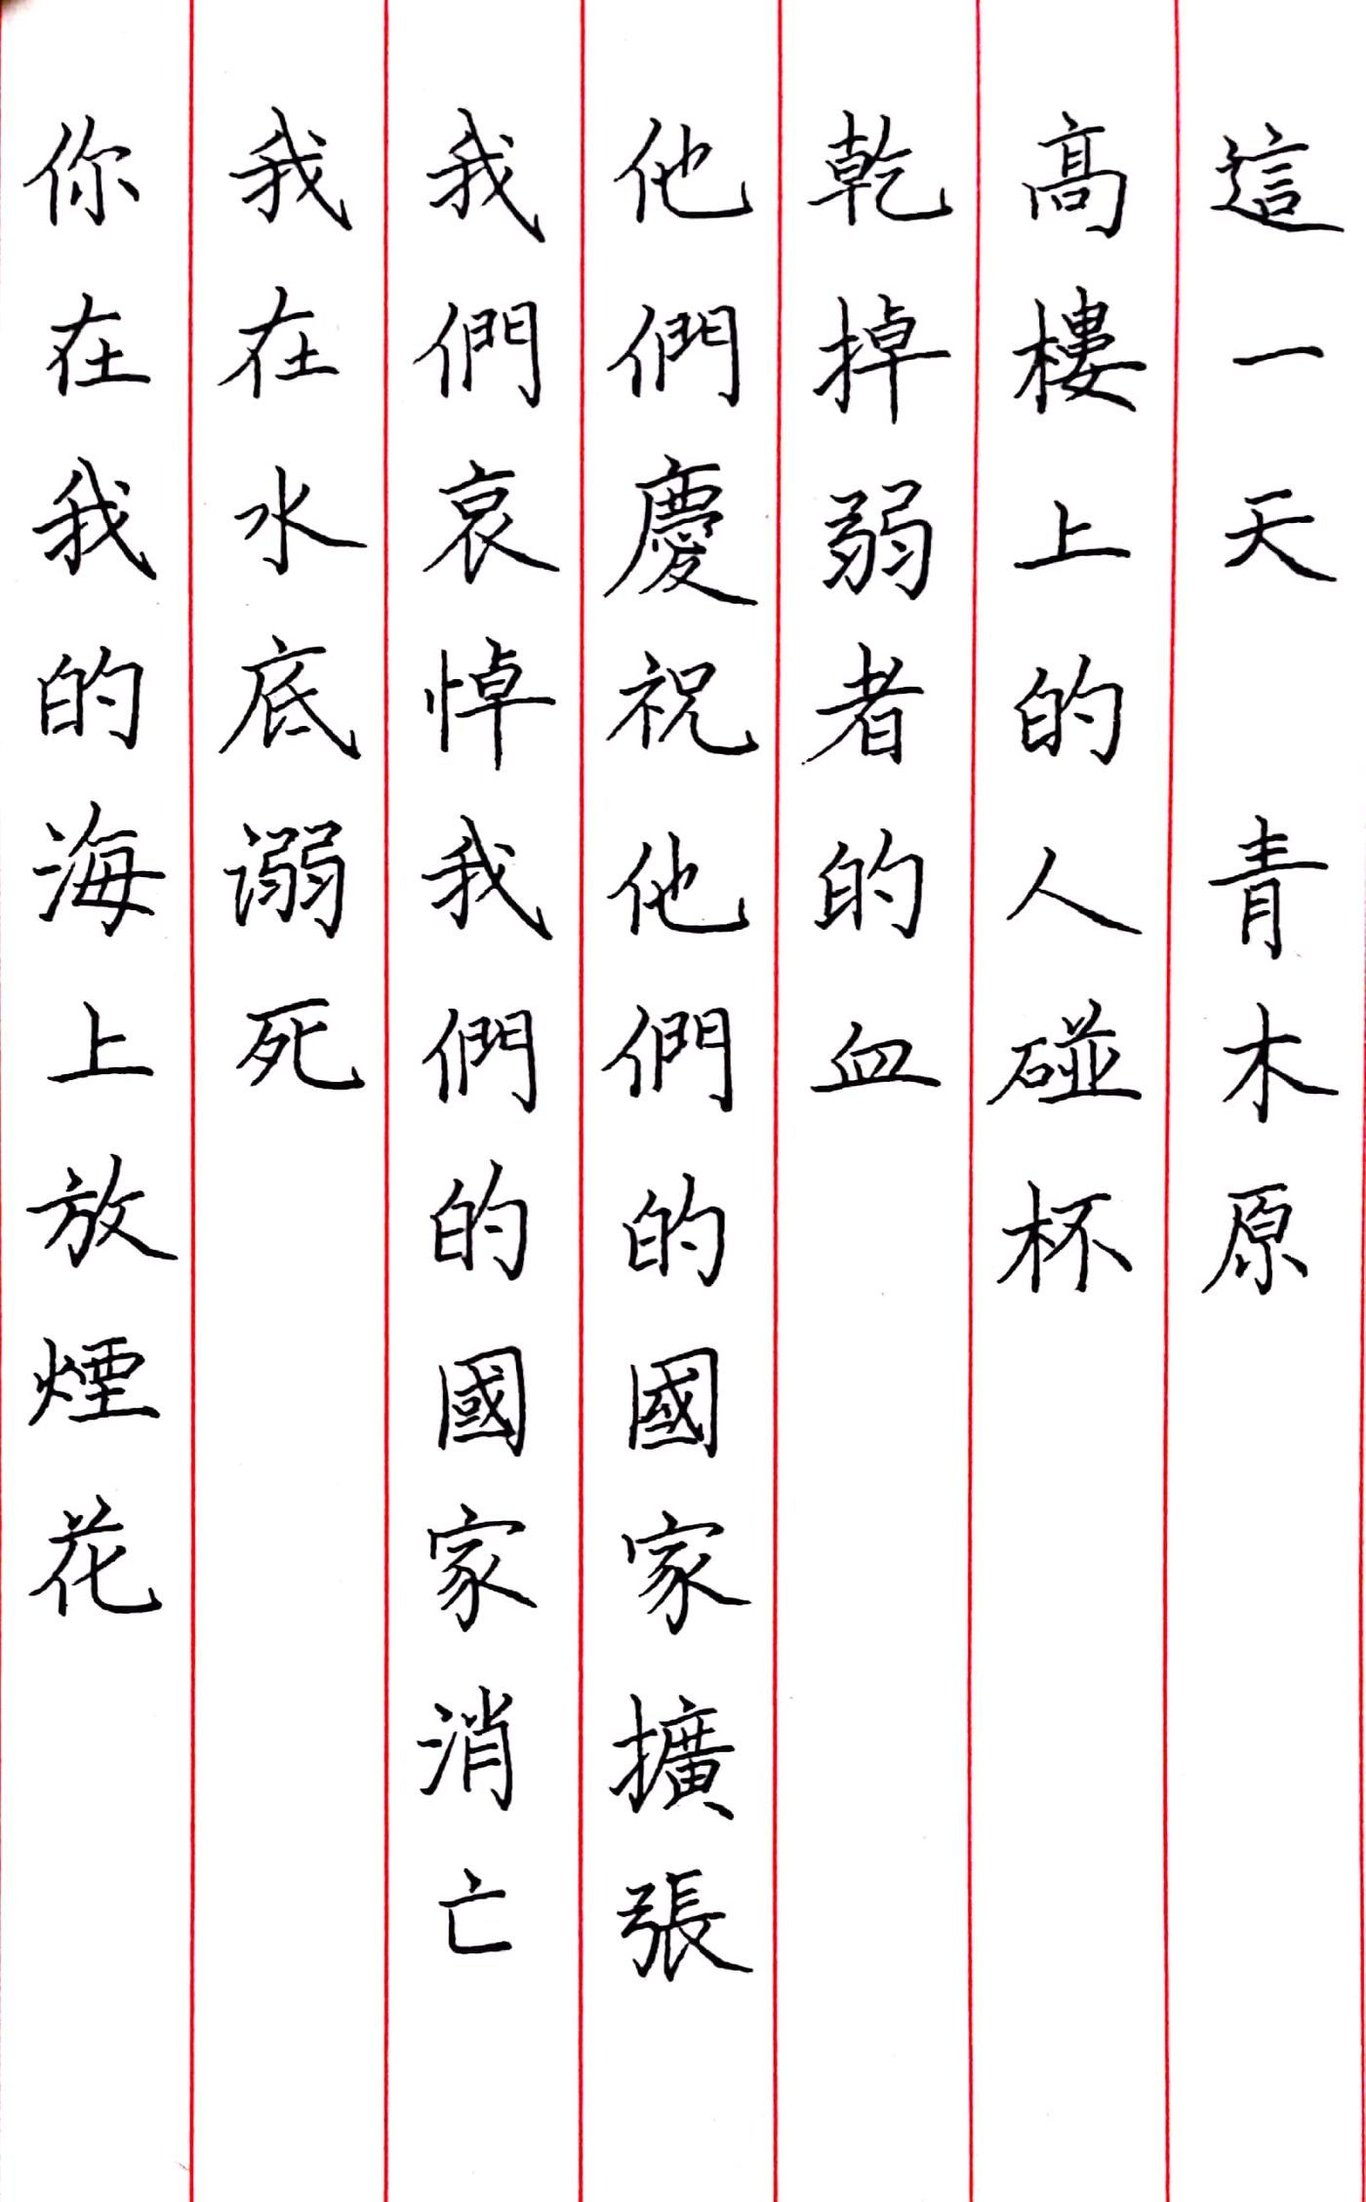 這一天 青木原
高樓上的人碰杯
乾掉弱者的血
他們慶祝他們的國家擴張
我們哀悼我們的國家消亡
我在水底溺死
你在我的海上放煙花